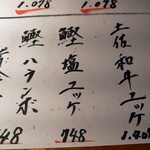 1.078
1.078
土佐和牛ユッケ
鰹塩ユッケ
748
鰹ハランボ
748